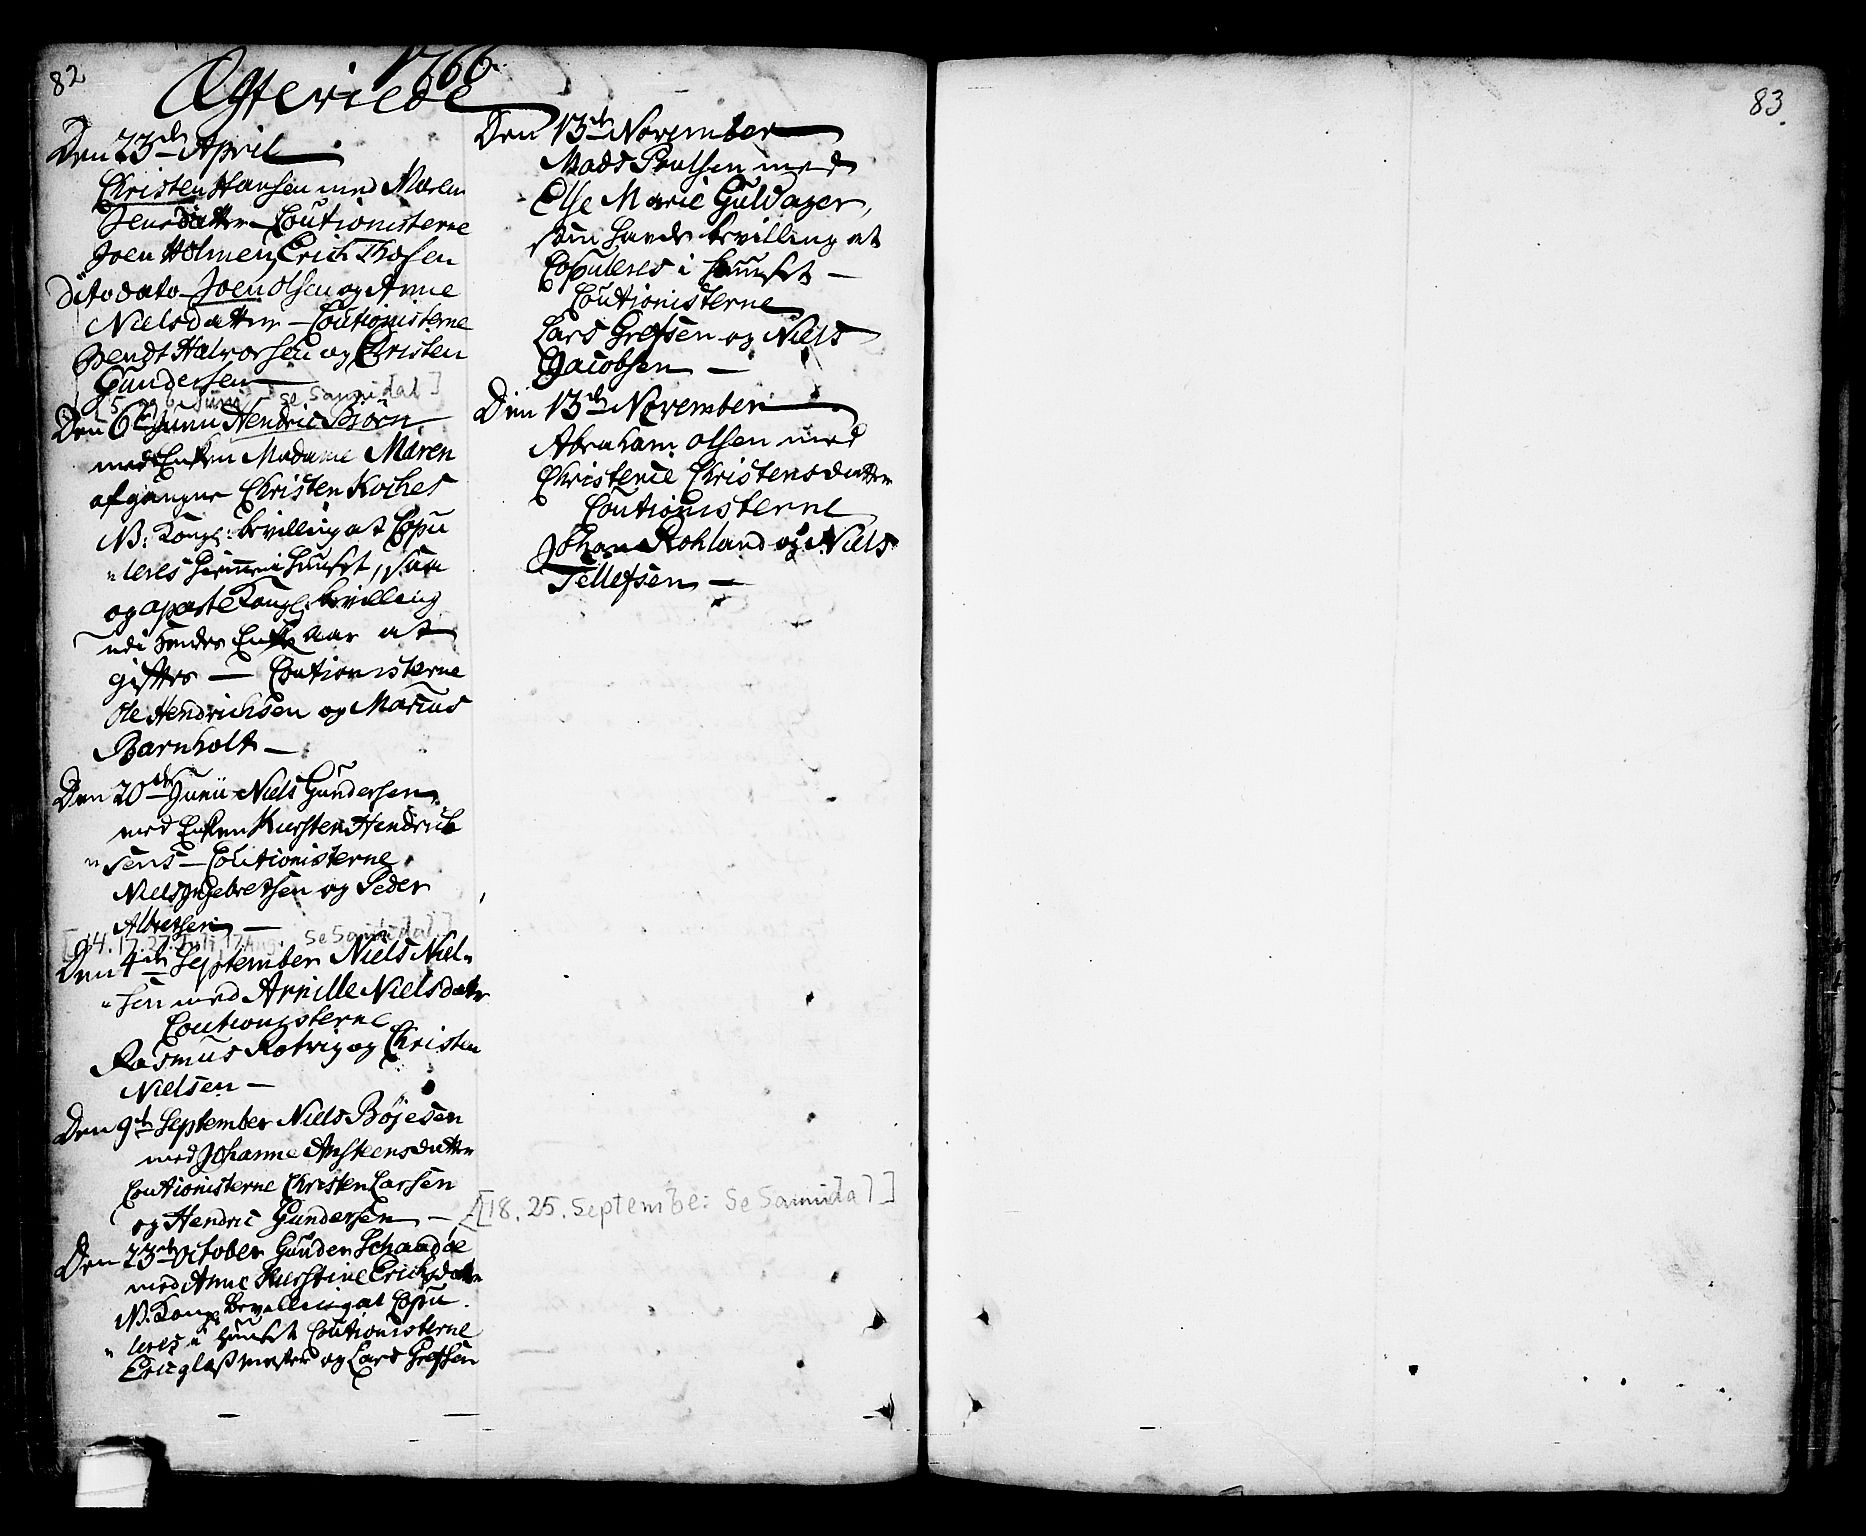 82
1766
Ægteviede
Den 23de April
Christen Hansen med Maren
Jensdatter Coutionisterne
Joen Holmen, Erich Thosen
Dito dato Joen Olsen og Anne
Nielsdatter Coutionisterne
Bendt Halvorsen og Christen
Gundersen
[5. og 6. Juni se Samnidal]
Den 6te Junii Hendric Biörn
med Enken Madame Maren
afgangne Christen Koches
NB: Kongl: bevilling at Copu
"leres hiemme i huuset, som
og aparte Kongl: bevilling
udi hendes Enke aar at
giftes — Coutionisterne
Ole Hendrichsen og Marcus
Barnholt —
Den 20de Junii Niels Gundersen
med Enken Kirsten Hendrich
"sens — Coutionisterne
Niels Ingebretsen og Peder
Albretsen —
[14. 17. 27. Juli, 17 Aug. Se Samidal]
Den 4de September Niels Niel"
"sen med Arnille Nielsdatr
Coutionisterne
Rasmus Rotvig og Christen
Nielsen —
Den 9de September Niels Böjesen
med Johanne Anstensdatter
Coutionisterne Christen Larsen
og Hendric Gundersen —
[18. 25. September: Se Samidal]
Den 23de October Gunder Schaadöe
med Anne Kirstine Erichsdatr
NB. Kongl Bevelling at Copu
"leres i huuset Coutionisterne
Eric glaßmester og Lars Grefsen
Den 13de November
Mads Poulsen med
Else Marie Guldager,
som havde bevilling at
Copuleres i huuset —
Coutionisterne
Lars Grefsen og Niels
Jacobsen —
Den 13de November
Abraham Olsen med
Christence Christensdatter
Coutionisterne
Johan Rohland og Niels
Tellefsen —
83.